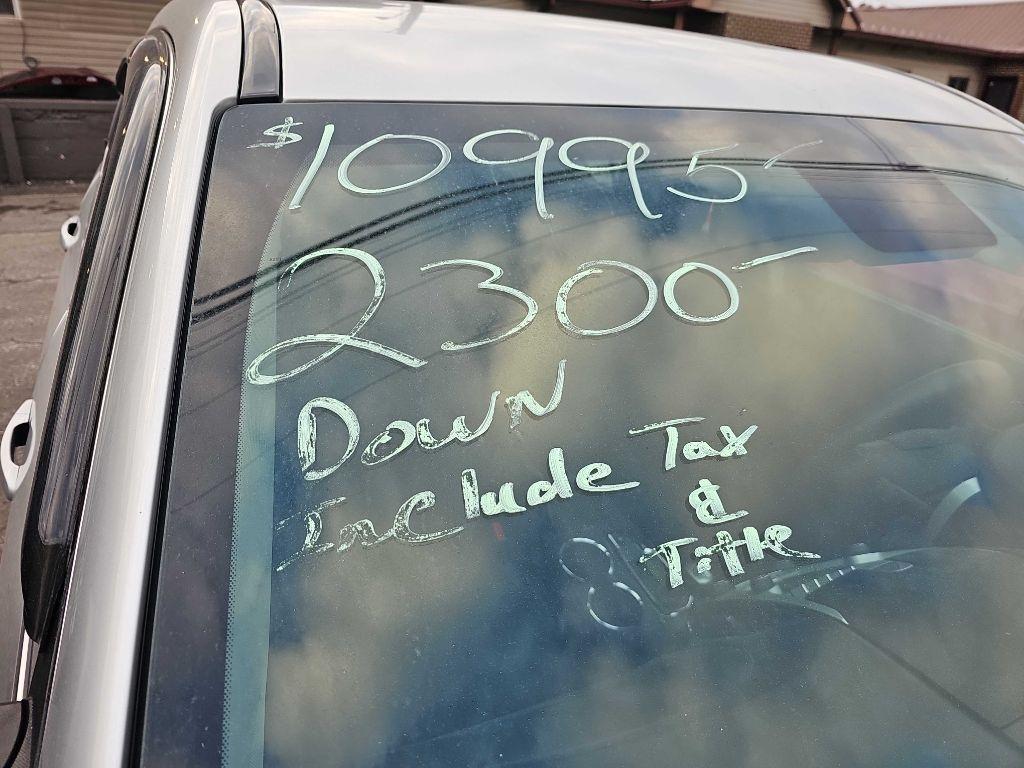 $10995-
2300-
Down
Include Tax
&
Title